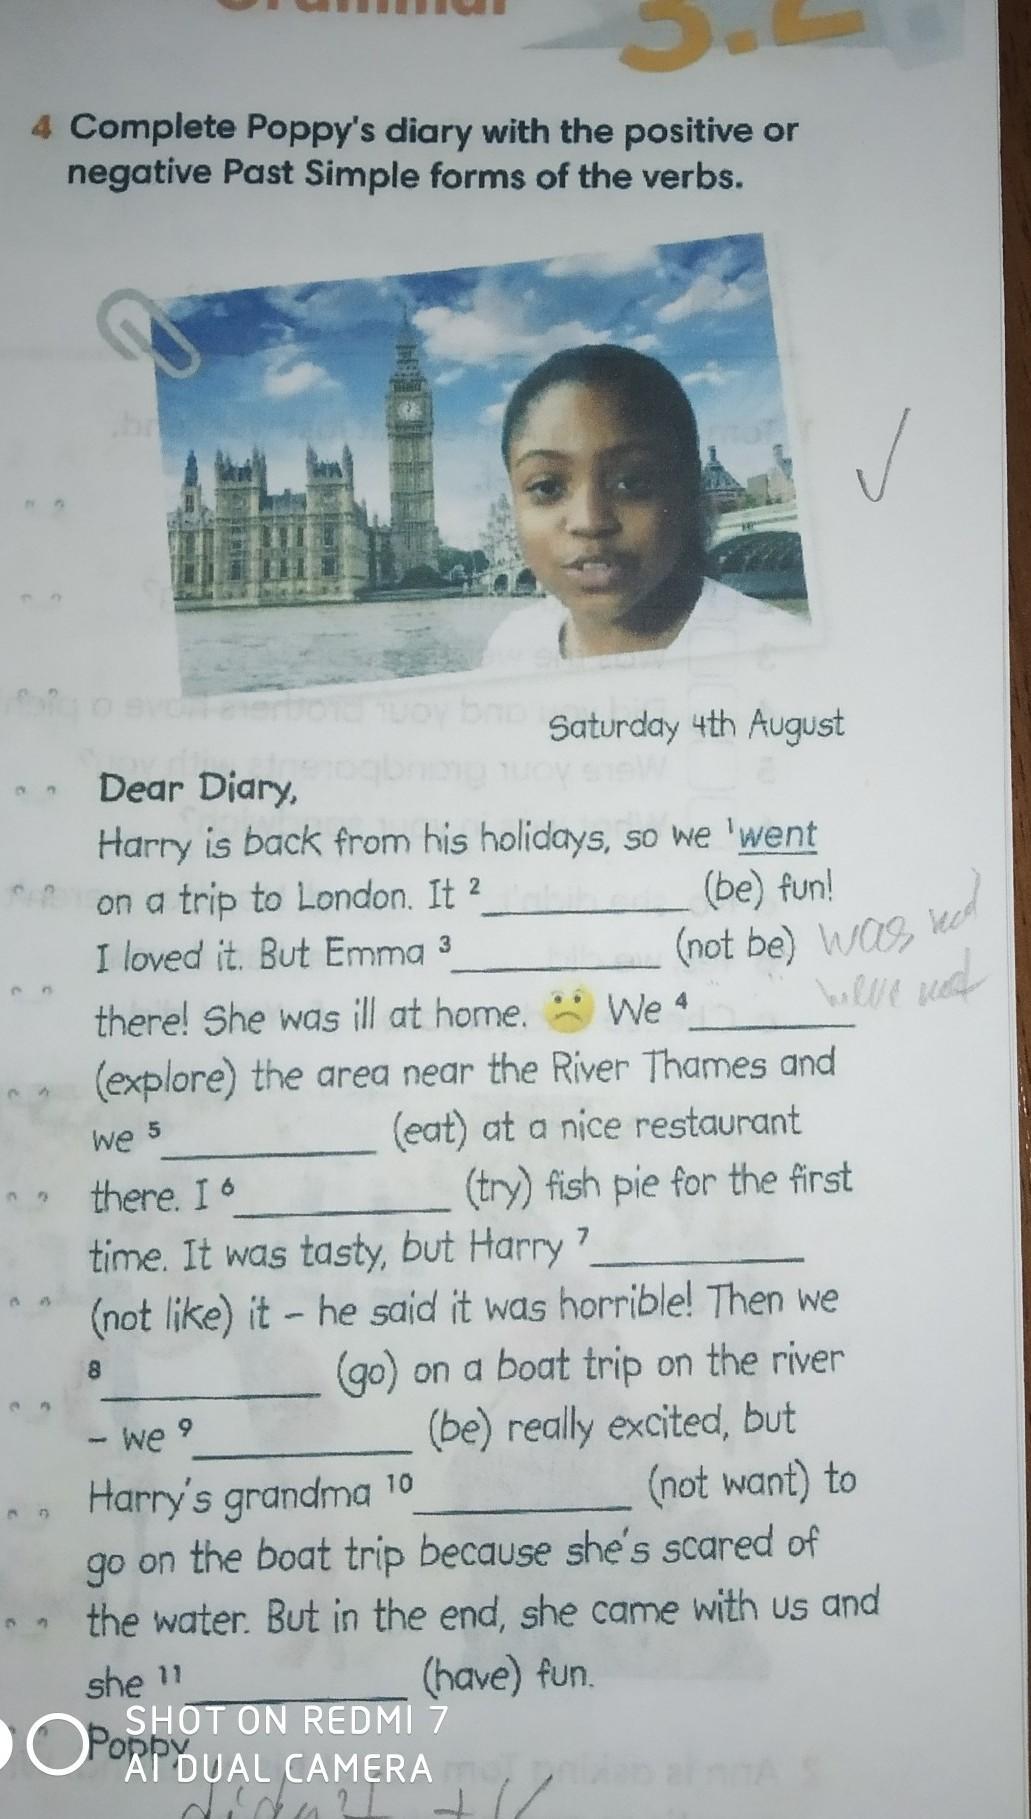 Grammar 3.2
4 Complete Poppy's diary with the positive or
negative Past Simple forms of the verbs.
Saturday 4th August
Dear Diary,
Harry is back from his holidays, so we ¹went
on a trip to London. It ²____________ (be) fun!
I loved it. But Emma ³____________ (not be) was not
were not
there! She was ill at home. We ⁴____________
(explore) the area near the River Thames and
we ⁵____________ (eat) at a nice restaurant
there. I ⁶____________ (try) fish pie for the first
time. It was tasty, but Harry ⁷____________
(not like) it – he said it was horrible! Then we
⁸____________ (go) on a boat trip on the river
– we ⁹____________ (be) really excited, but
Harry's grandma ¹⁰____________ (not want) to
go on the boat trip because she's scared of
the water. But in the end, she came with us and
she ¹¹____________ (have) fun.
Poppy
SHOT ON REDMI 7
AI DUAL CAMERA
didn't +